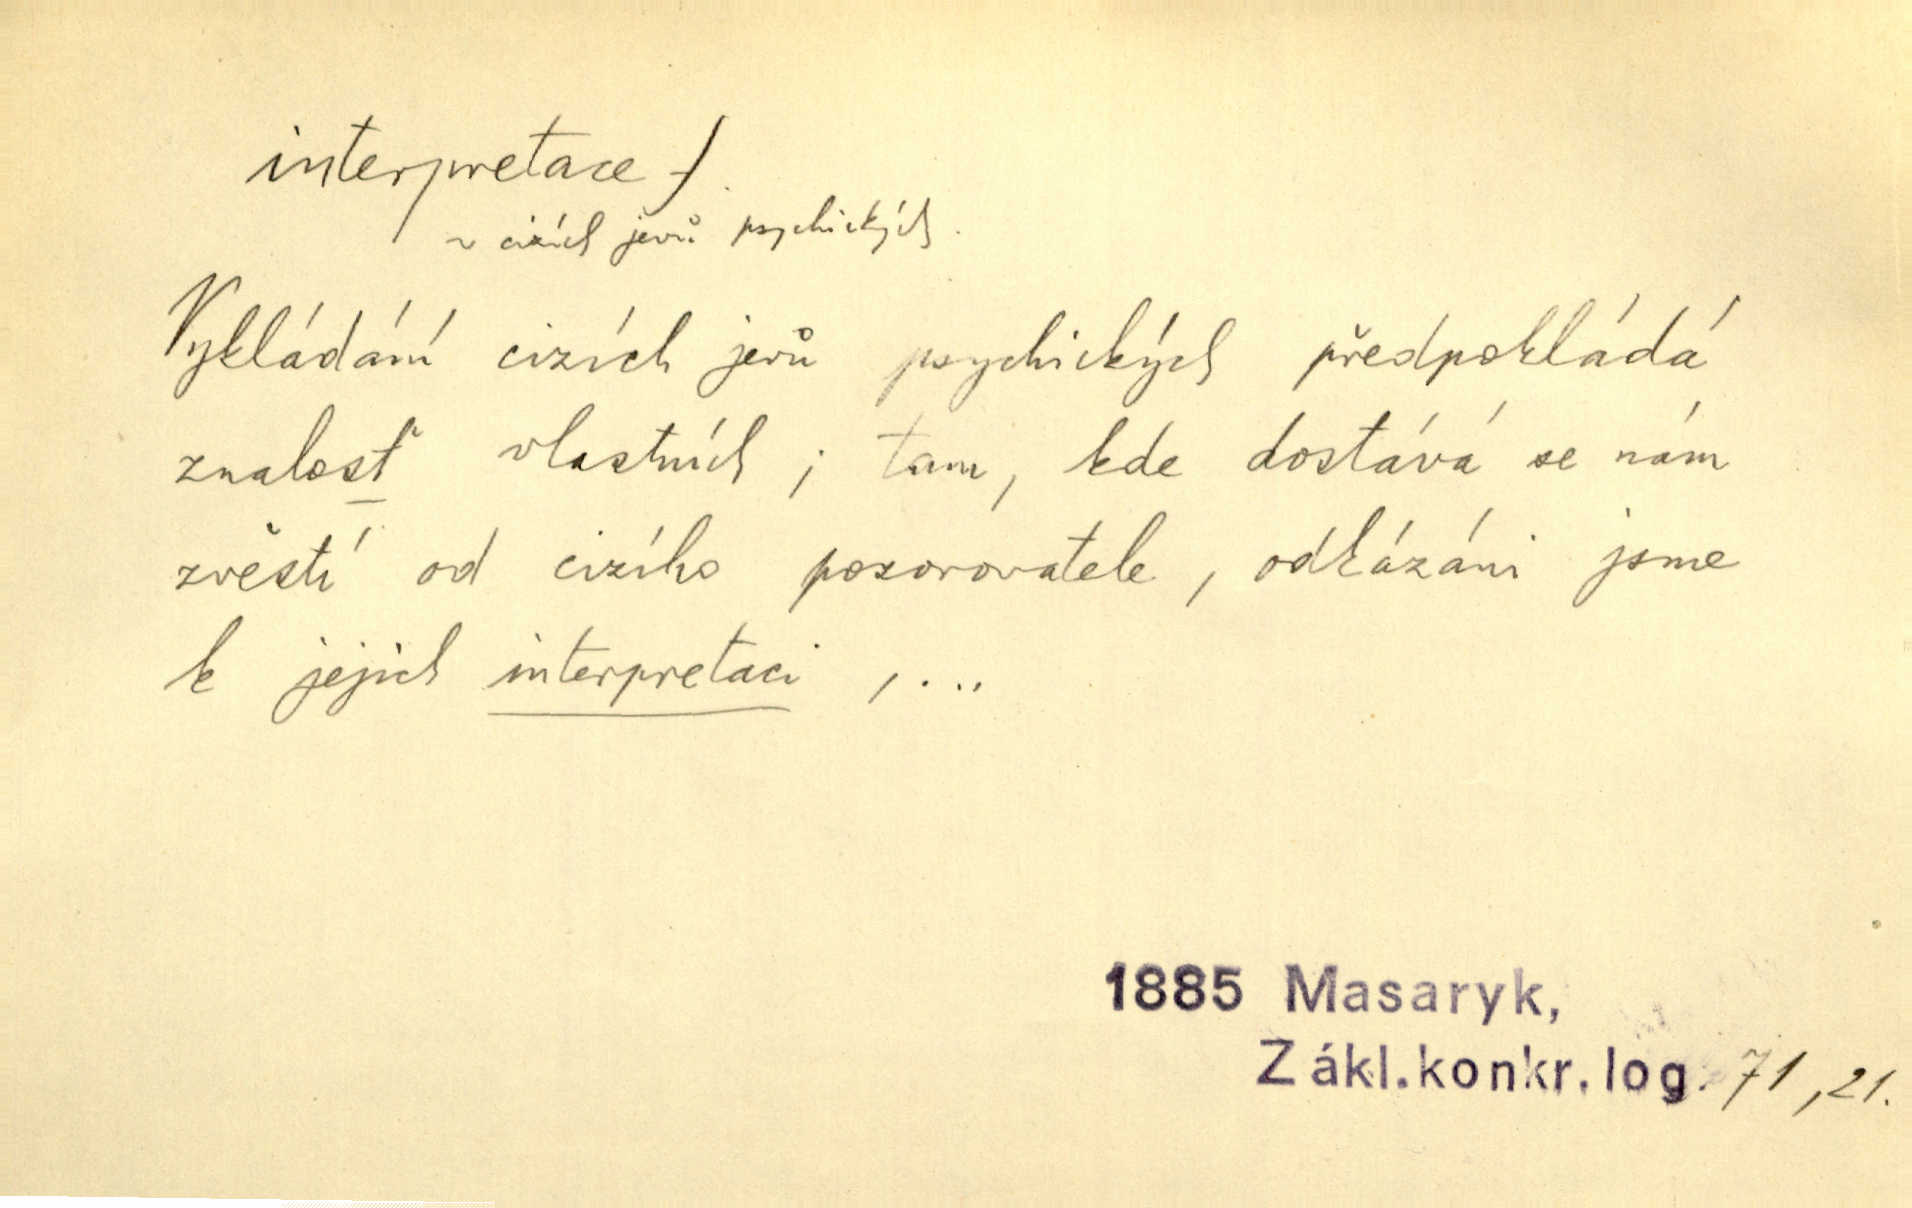 interpretace f.
~ cizích jevů psychických.
Vykládání cizích jevů psychických předpokládá
znalosť vlastních; tam, kde dostává se nám
zvěstí od cizího pozorovatele, odkázáni jsme
k jejich interpretaci, ...
1885 Masaryk,
Zákl.konkr.log. 71, 21.